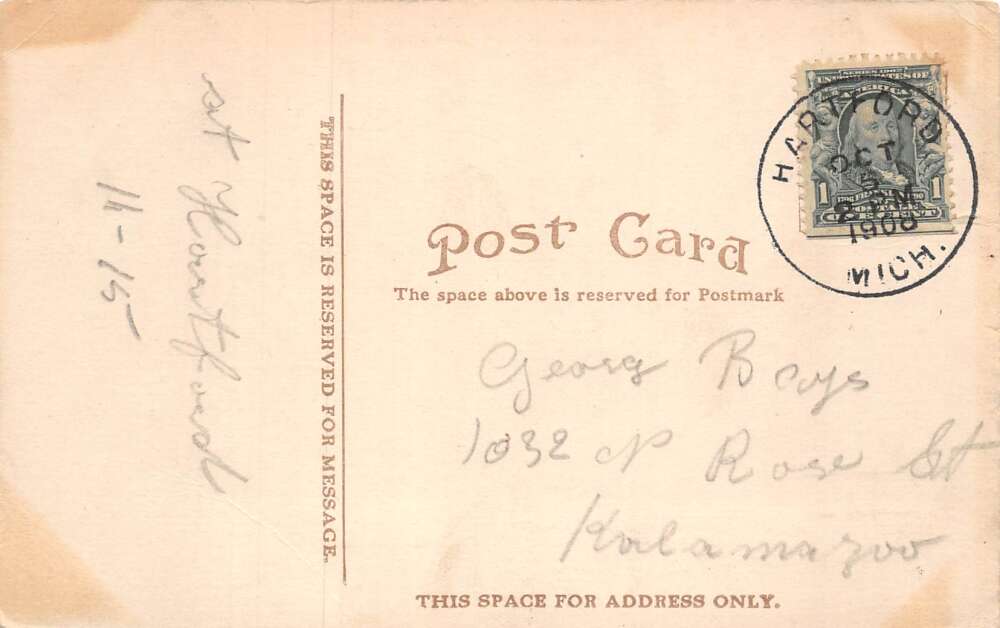 at Hartford
11-15-
THIS SPACE IS RESERVED FOR MESSAGE.
SERIES 1902
UNITED STATES OF
AMERICA
1 1
FRANKLIN
HARTFORD
OCT
5
2 PM
1908
MICH.
Post Card
The space above is reserved for Postmark
Georg Bays
1032 N Rose St
Kalamazoo
THIS SPACE FOR ADDRESS ONLY.